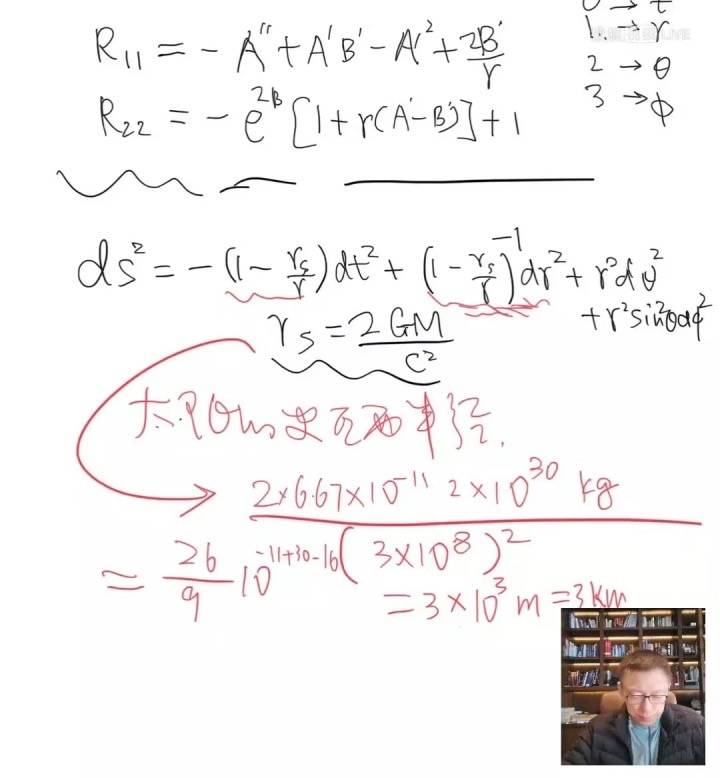 0 → t
R₁₁ = - A'' + A'B' - A'² + 2B'/r
1 → r
2 → θ
R₂₂ = - e^{2B} [1 + r(A' - B')] + 1
3 → ϕ
ds² = - (1 - r_s/r) dt² + (1 - r_s/r)^{-1} dr² + r²dθ²
+ r²sin²θdϕ²
r_s = 2GM/c²
太阳的史瓦西半径.
2×6.67×10^{-11} 2×10^{30} kg
(3×10^8)²
= 26/9 10^{-11+30-16}
= 3×10³ m = 3km